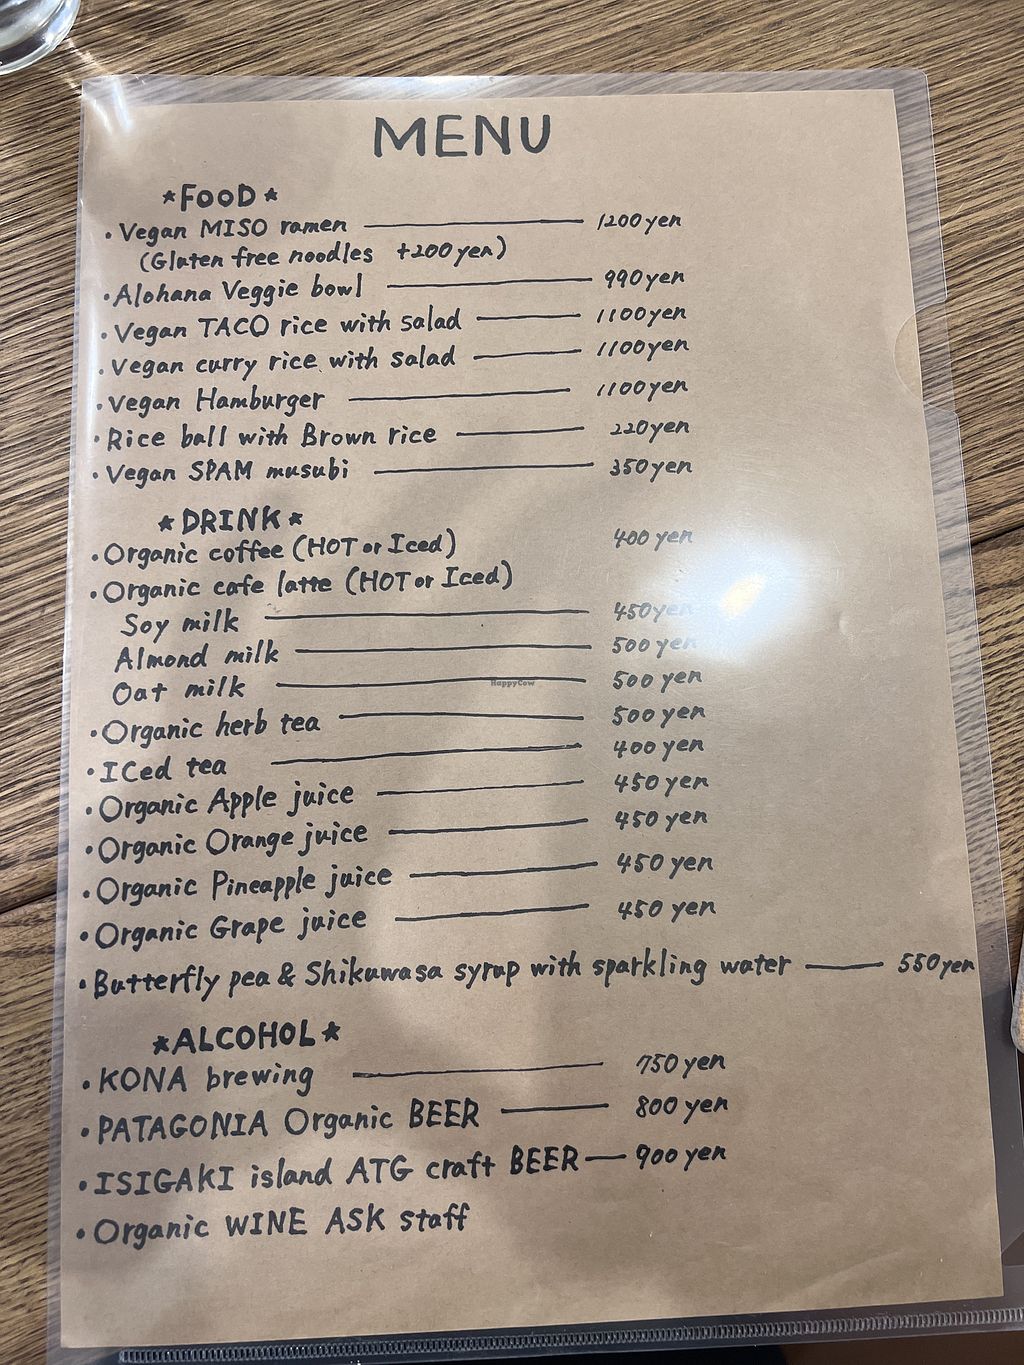 MENU
*FOOD*
・Vegan MISO ramen 1200yen
(Gluten free noodles +200yen)
・Alohana Veggie bowl 990yen
・Vegan TACO rice with salad 1100yen
・Vegan curry rice with salad 1100yen
・Vegan Hamburger 1100yen
・Rice ball with Brown rice 220yen
・Vegan SPAM musubi 350yen
*DRINK*
・Organic coffee (HOT or Iced) 400yen
・Organic cafe latte (HOT or Iced)
Soy milk 450yen
Almond milk 500yen
Oat milk 500yen
HappyCow
・Organic herb tea 500yen
・ICed tea 400yen
・Organic Apple juice 450yen
・Organic Orange juice 450yen
・Organic Pineapple juice 450yen
・Organic Grape juice 450yen
・Butterfly pea & Shikuwasa syrup with sparkling water 550yen
*ALCOHOL*
・KONA brewing 750yen
・PATAGONIA Organic BEER 800yen
・ISIGAKI island ATG craft BEER 900yen
・Organic WINE ASK staff